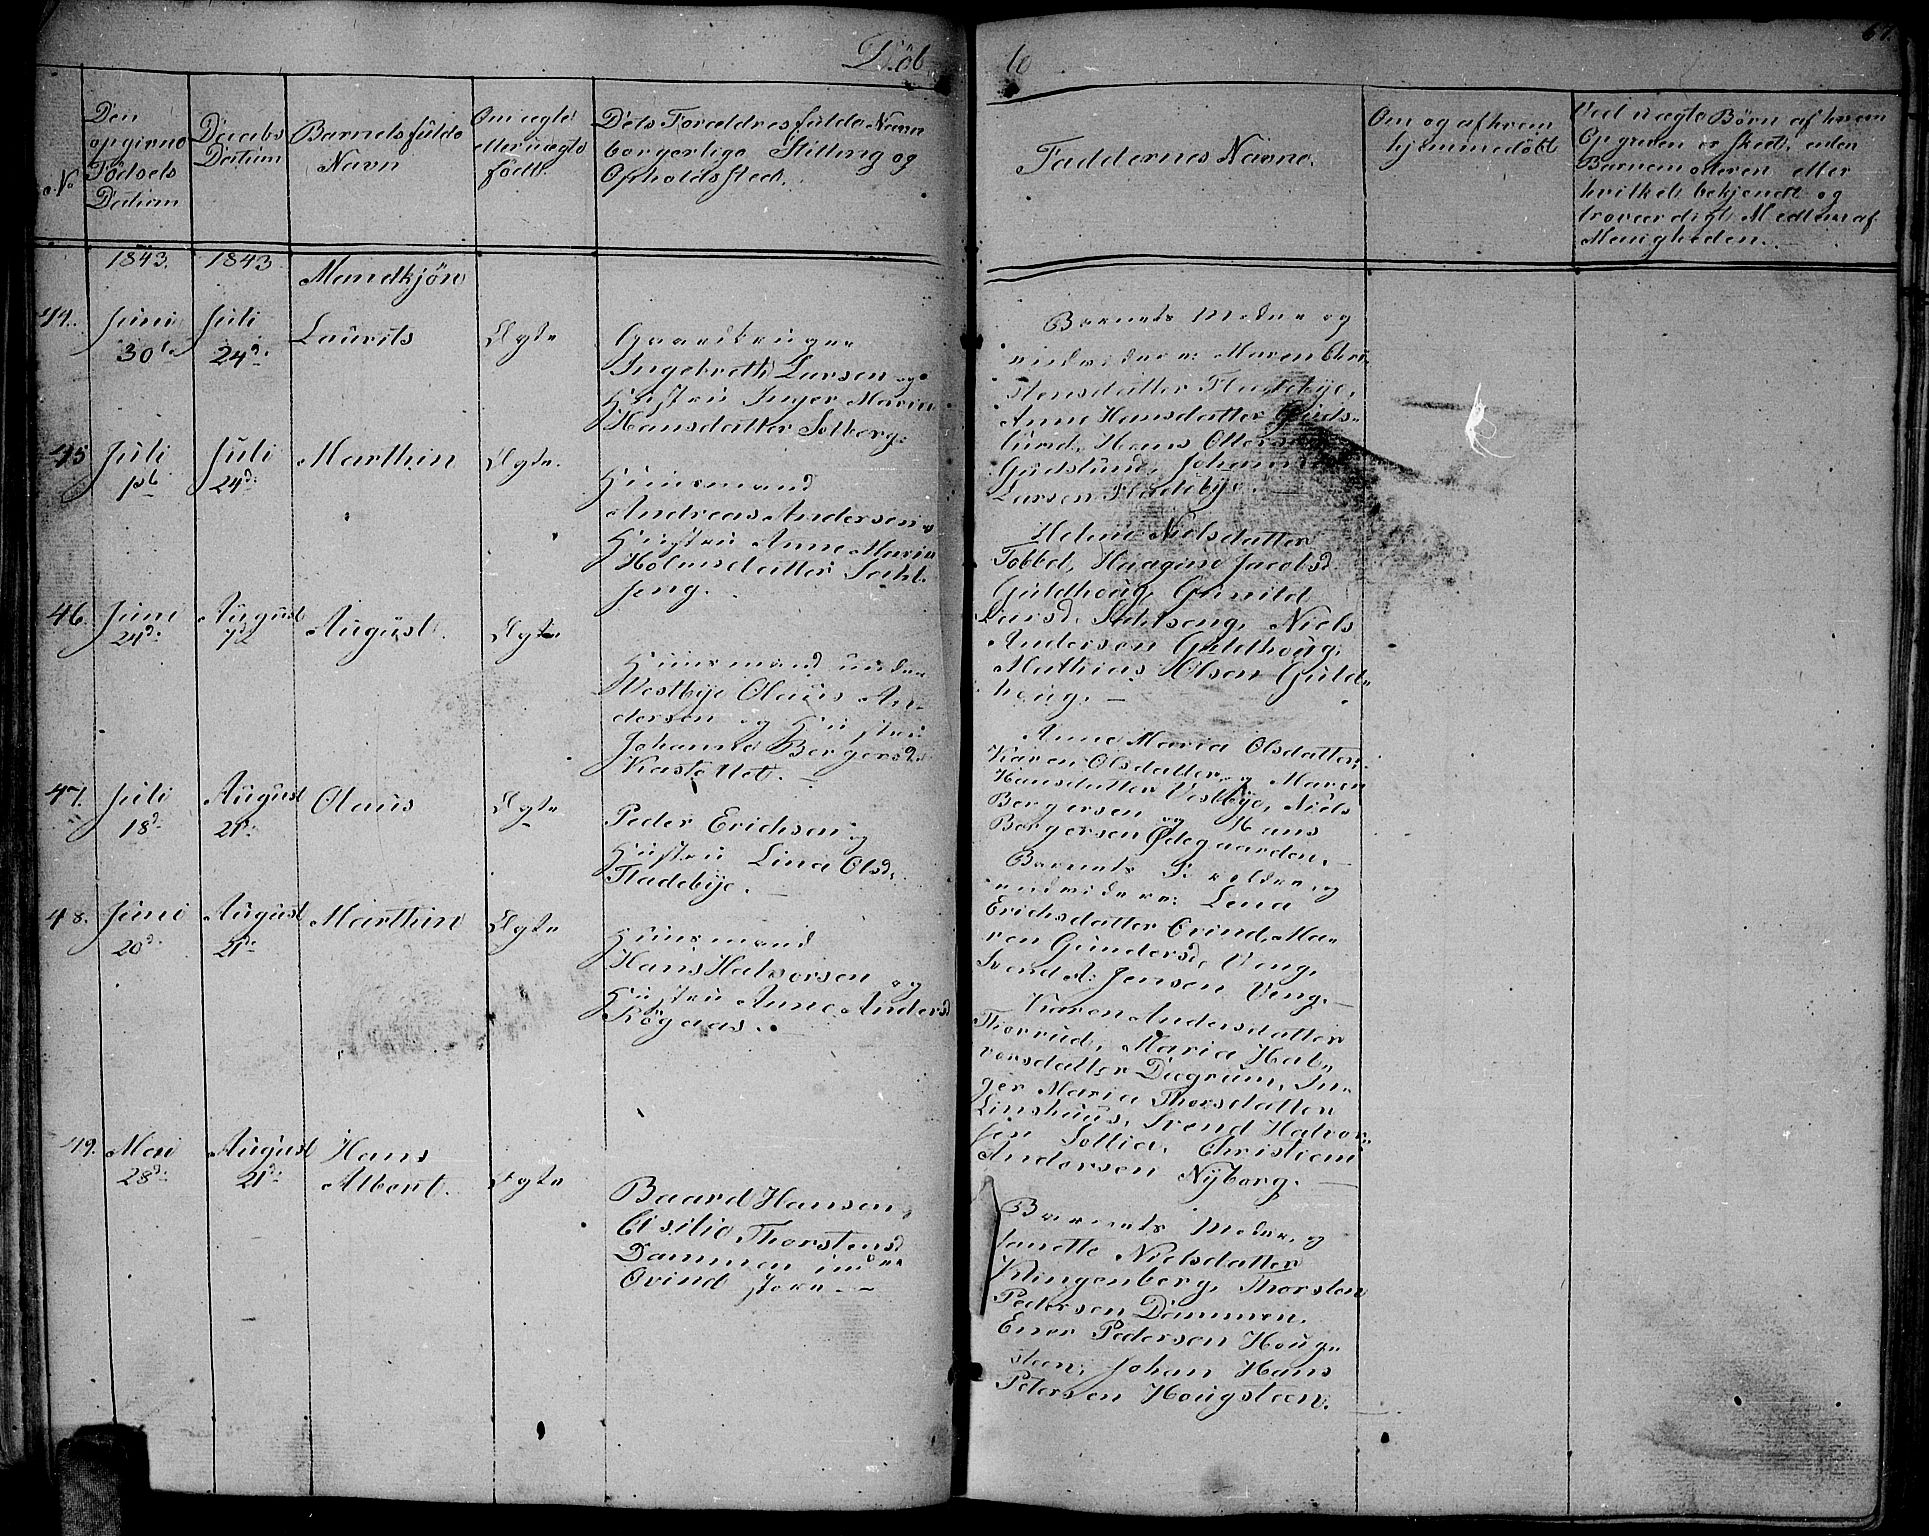 Döb
No
Den
opgivne
Födsels
Datum
Daabs
Datum
Barnets fulde
Navn
Om ægte
eller uægte
födt.
Dets Forældres fulde Navn
borgerlige Stilling og
Opholdssted.
1843. 1843
Mandkjön
44. Juni 30te Juli 24d: Laurits Ægte
Gaardbruger
Ingebreth Larsen og
Hustru Inger Maria
Hansdatter Solberg.
45 Juli Juli 24d: Marthin Ægte.
Huusmand
Andreas Andersen
Hustru Anne Maria
Holmsdatter Sahl-
seng.
46. Juni 24d: August 7d August. Ægte
Huusmand under
Westbye Olaus An-
dersen og Hustru
Johanne Bergersd:
Kastellet.
47. Juli 18d: August 21d: Olaus Ægte
Peder Erichsen og
Hustru Lina Olsd:
Fladebye.
48. Juni 20d: August 21d: Marthin Ægte
Huusmand
Hans Halvorsen og
Hustru Anne Andersd
Rögaas.
49. Mai 28d: August 21d: Hans
Albert. Ægte
Baard Hansen,
Cisilie Thorstensd
Dammen under
Ovind store
67.
te
Faddernes Navne.
Om og af hvem
hjemmedöbt
Ved uægte Børn af hvem
Opgaven er skedt, enten
Barnemoderen eller
hvilket bekjendt og
troværdigt Medlem af
Menigheden.
Barnets Moder og
endvidere: Maren Chri-
stensdatter Fladebye,
Anne Hansdatter Guds-
lund, Hans Ottersen
Gudslund, Johannes
Larsen Fladebye.
Helene Nielsdatter
Tobbel, Haagine Jacobsd
Guldhoug, Gunild
Larsd. Sahlseng, Niels
Andersen Guldhoug,
Mathias Olsen Guld-
houg.
Anne Maria Olsdatter,
Karen Olsdatter og Maren
Hansdatter Vestbye, Niels
Bergersen og Hans
Bergersen Ødegaarden.
Barnets Forældre og
endvidere: Lena
Erichsdatter Ovind, Ma-
ren Gundersd. Veng,
Svend A: Jensen Veng.
Karen Andersdatter
Thorrud, Maria Hal-
vorsdatter Dagrum, In-
ger Maria Thorsdatter
Linshuus, Svend Halvor-
sen Sollia, Christian
Andersen Nyborg.
Barnets Moder og
Janette Nielsdatter
Klingenberg, Thorsten
Pedersen Dammen,
Ener Pedersen Houg-
steen, Johan Hans
Petersen Hougsteen.